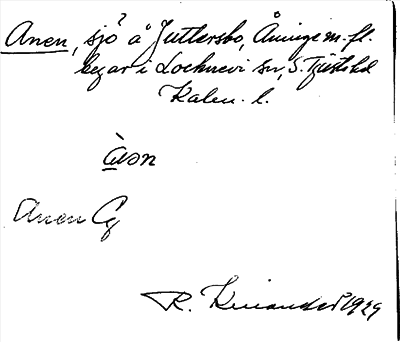 Anen, sjö å Juttersbo, Åminge m. fl.
begar i Lochnevi sn, S. Tjusts hd
Kalm. l.
àนən
Anen Cg
R. Kinander 1929